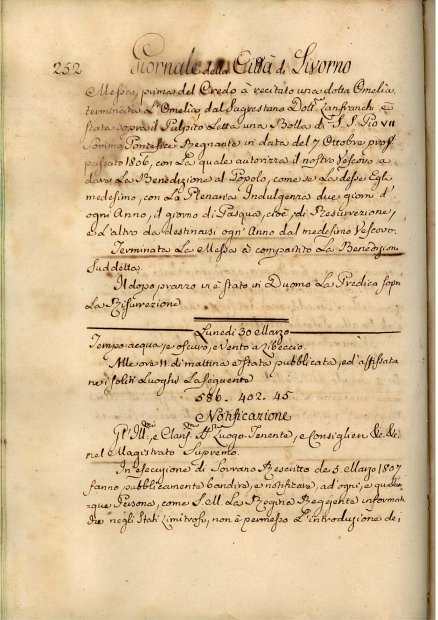 252 Giornale della Città di Livorno
Messa, prima del Credo à recitato una dotta Omelia
terminata L'Omelia, dal Sagrestano Dott. Lanfranchi è
stata sopra il Pulpito Letta una Bolla di S. S. Pio VII
Sommo Pontefice Regnante in data del 7 Ottobre pros.
passato 1806, con La quale autorizza il nostro Vescovo a
dare La Benedizione al Popolo, come se La desse Egli
medesimo, con La Plenaria Indulgenza due giorni d'
ogni Anno, il giorno di Pasqua, cioè, di Resurrezione,
e L'altro da destinarsi ogn'Anno dal medesimo Vescovo.
Terminata La Messa à compartito La Benedizione
Suddetta.
Il dopo pranzo vi è stato in Duomo La Predica sopra
La Risurrezione
Lunedi 30 Marzo
Tempo acqua, e oscuro, e Vento a Libeccio.
Alle ore 11. di mattina è stata pubblicata, ed affissata
ne i soliti Luoghi La seguente
586. 402. 45.
Notificazione
Gl' Ill.mi, e Clariss.mi SS.ri Luogo-Tenente, e Consiglieri &c. &c.
nel Magistrato Supremo.
In esecuzione di Sovrano Rescritto de 5. Marzo 1807
fanno pubblicamente bandire, e notificare, ad ogni, e qualun-
que Persona, come S. M. La Regina Reggente informata
che negli Stati Limitrofi, non è permesso L'introduzione dei